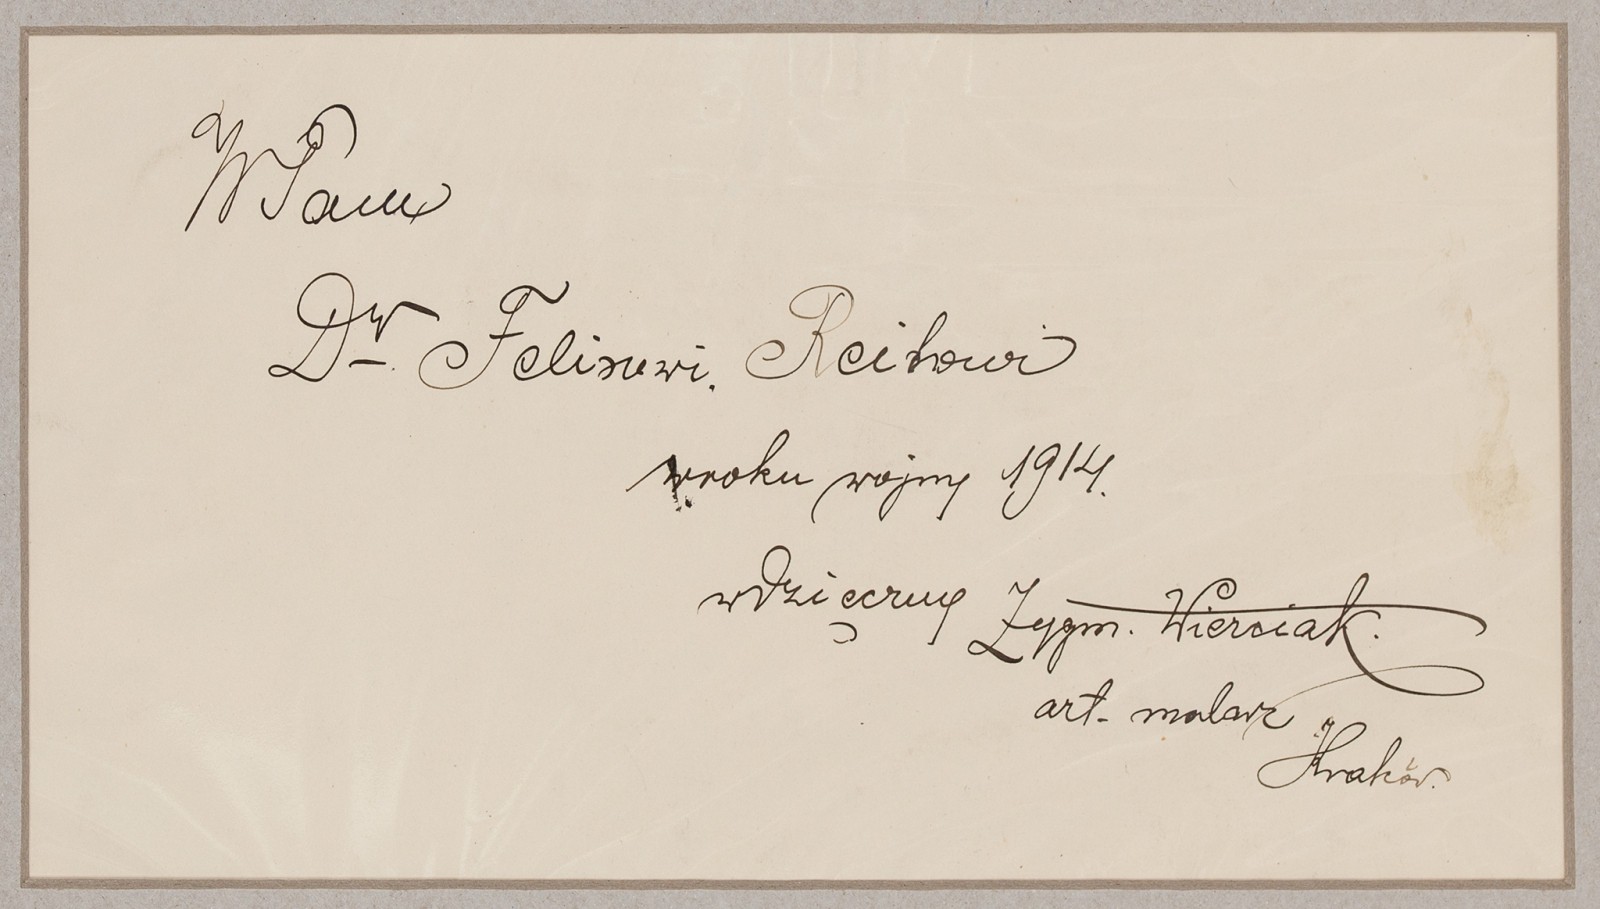 WPanu
Dr. Felixowi Reihowi
w roku wojny 1914.
wdzięczny Zygm. Wierciak.
art. malarz
Kraków.